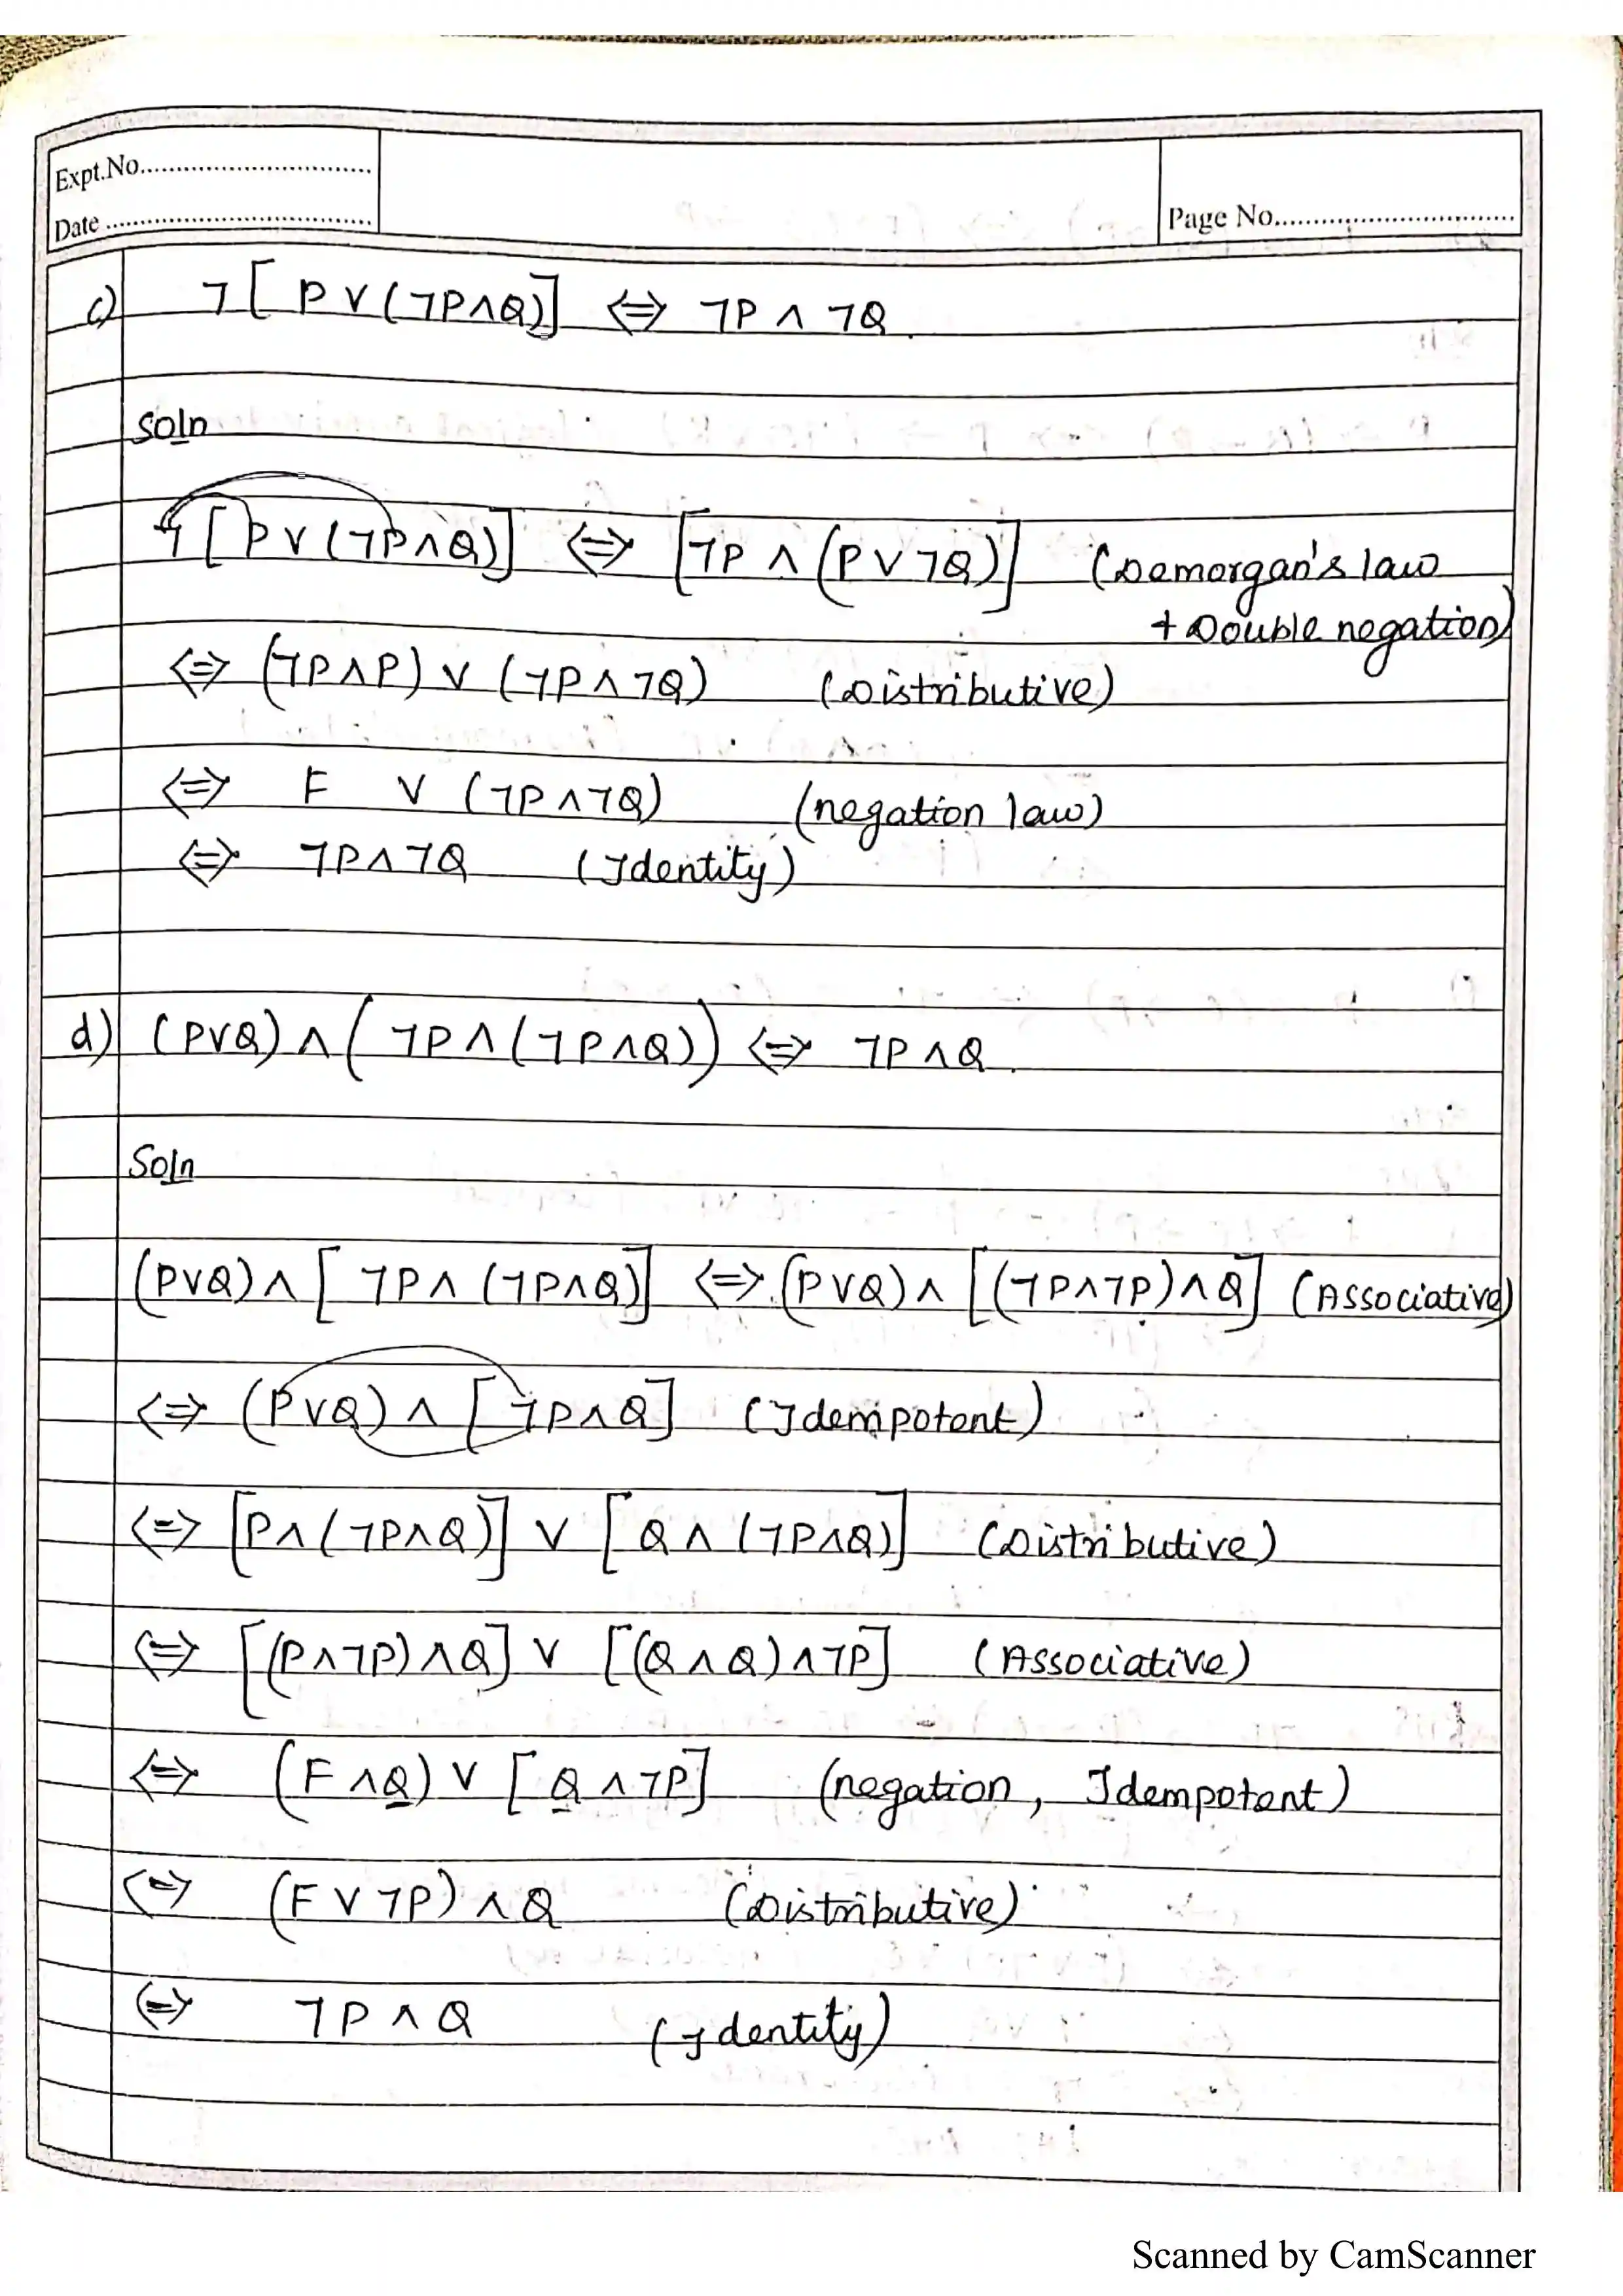 Expt.No..............................
Date ......................................
Page No................................
c) ¬[P∨(¬P∧Q)] <=> ¬P ∧ ¬Q.
Soln
¬[P∨(¬P∧Q)] <=> [¬P ∧ (P∨¬Q)] (Demorgan's law
+ Double negation)
<=> (¬P∧P) ∨ (¬P∧¬Q) (Distributive)
<=> F ∨ (¬P∧¬Q) (negation law)
<=> ¬P∧¬Q (Identity)
d) (P∨Q)∧(¬P∧(¬P∧Q)) <=> ¬P∧Q.
Soln
(P∨Q)∧[¬P∧(¬P∧Q)] <=> (P∨Q)∧[(¬P∧¬P)∧Q] (Associative)
<=> (P∨Q)∧[¬P∧Q] (Idempotent)
<=> [P∧(¬P∧Q)] ∨ [Q∧(¬P∧Q)] (Distributive)
<=> [(P∧¬P)∧Q] ∨ [(Q∧Q)∧¬P] (Associative)
<=> (F∧Q) ∨ [Q∧¬P] (negation, Idempotent)
<=> (F∨¬P)∧Q (Distributive)
<=> ¬P∧Q (Identity)
Scanned by CamScanner